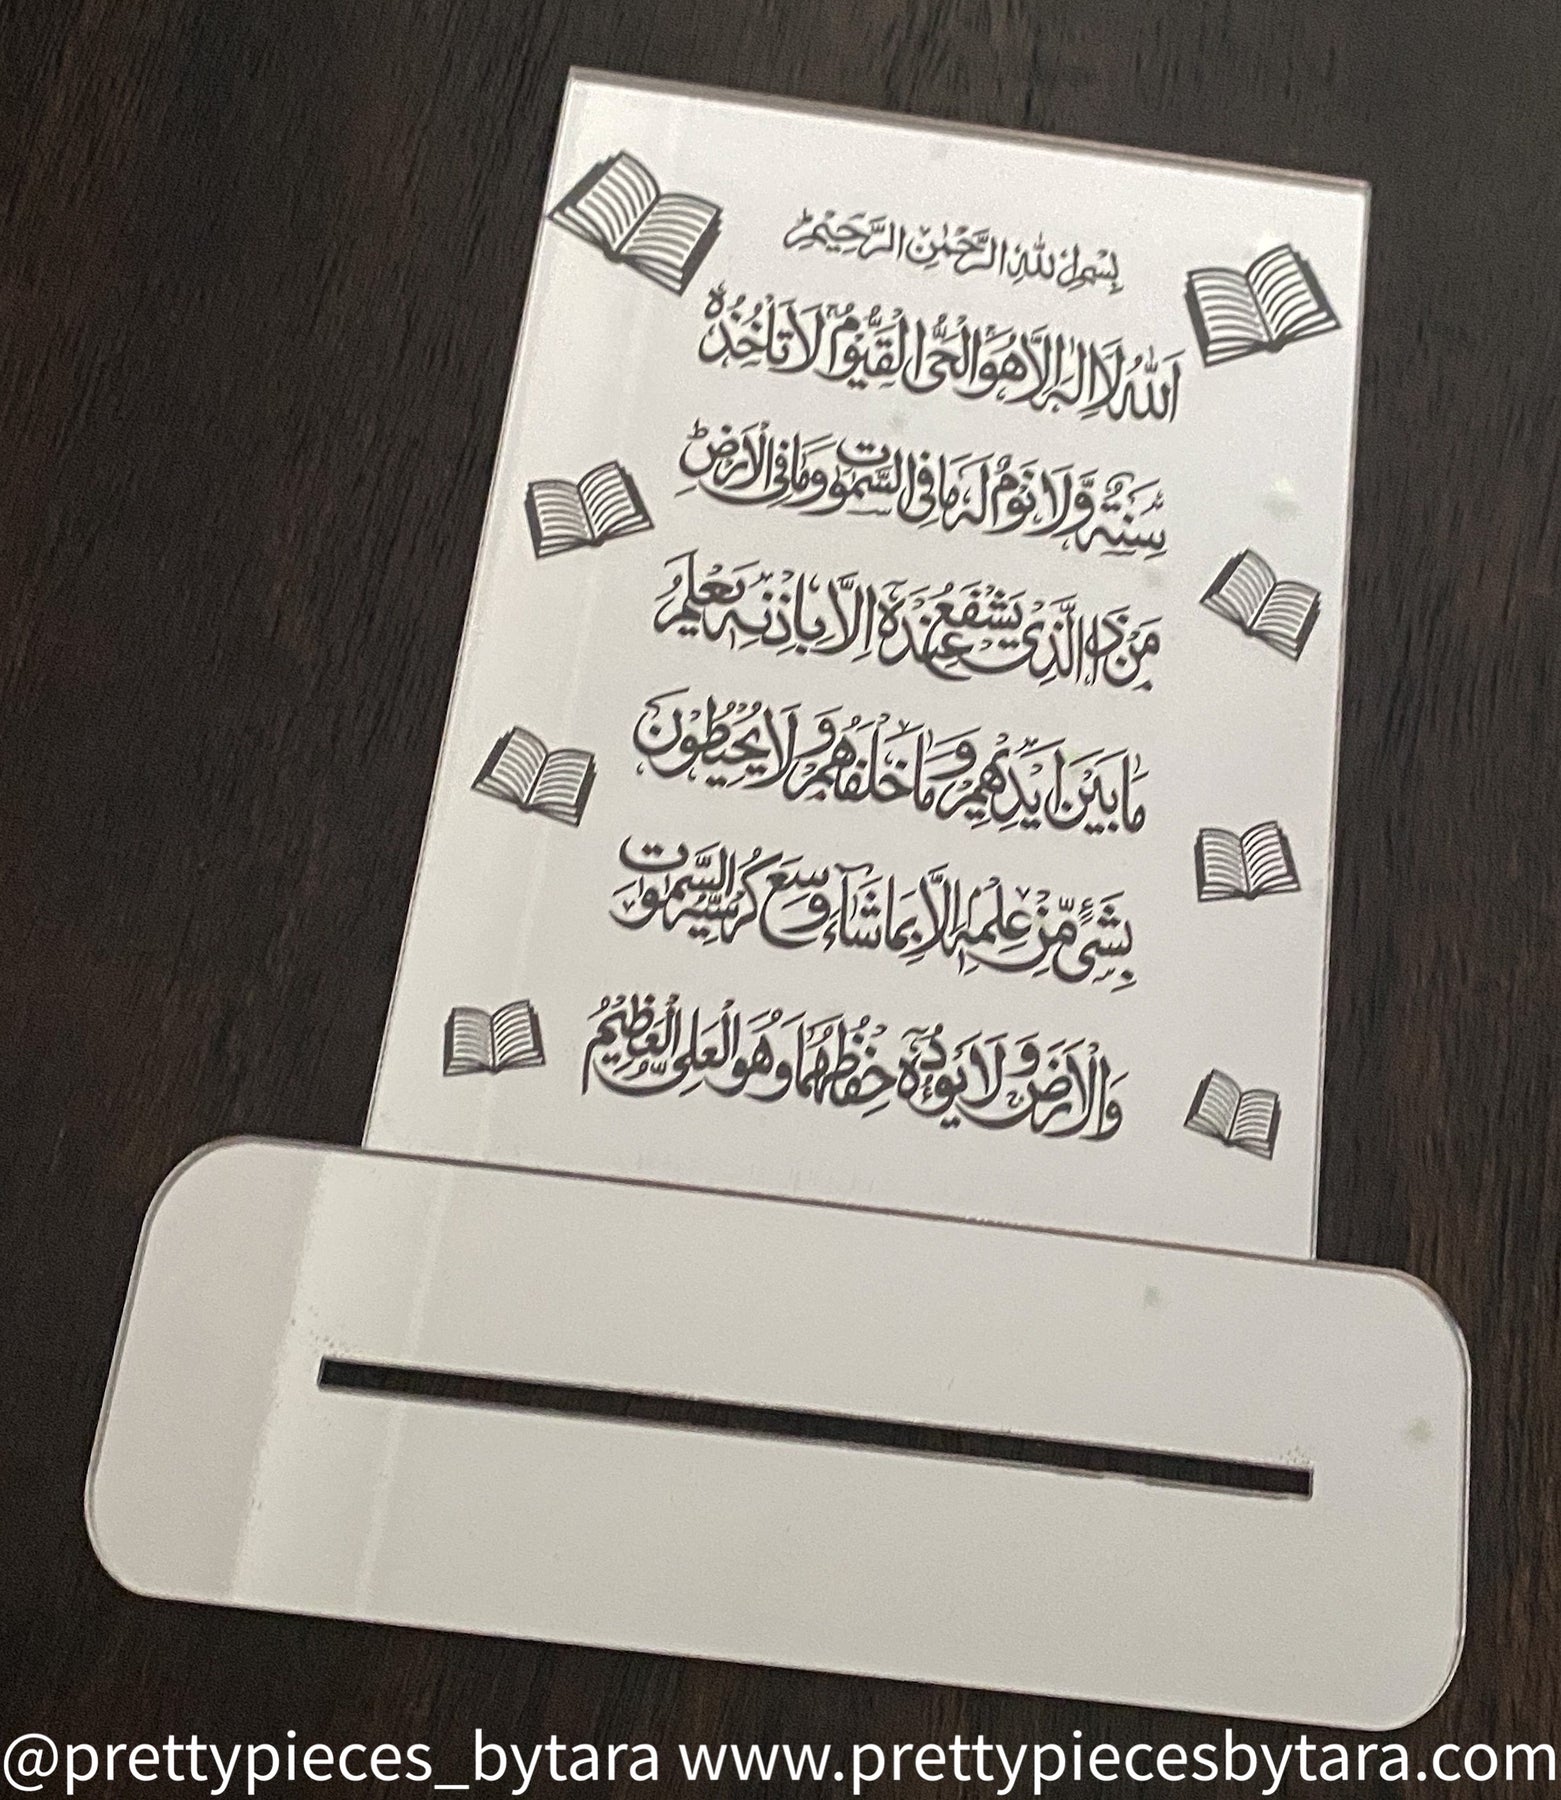 بِسْمِ اللهِ الرَّحْمٰنِ الرَّحِيْمِ
اَللهُ لَا اِلٰهَ اِلَّا هُوَ الْحَىُّ الْقَيُّوْمُ لَا تَاْخُذُهٗ
سِنَةٌ وَّلَا نَوْمٌ لَهٗ مَا فِى السَّمٰوٰتِ وَمَا فِى الْاَرْضِ
مَنْ ذَا الَّذِىْ يَشْفَعُ عِنْدَهٗ اِلَّا بِاِذْنِهٖ يَعْلَمُ
مَا بَيْنَ اَيْدِيْهِمْ وَمَا خَلْفَهُمْ وَلَا يُحِيْطُوْنَ
بِشَىْءٍ مِّنْ عِلْمِهٖ اِلَّا بِمَا شَآءَ وَسِعَ كُرْسِيُّهُ السَّمٰوٰتِ
وَالْاَرْضَ وَلَا يَئُوْدُهٗ حِفْظُهُمَا وَهُوَ الْعَلِىُّ الْعَظِيْمُ
@prettypieces_bytara www.prettypiecesbytara.com